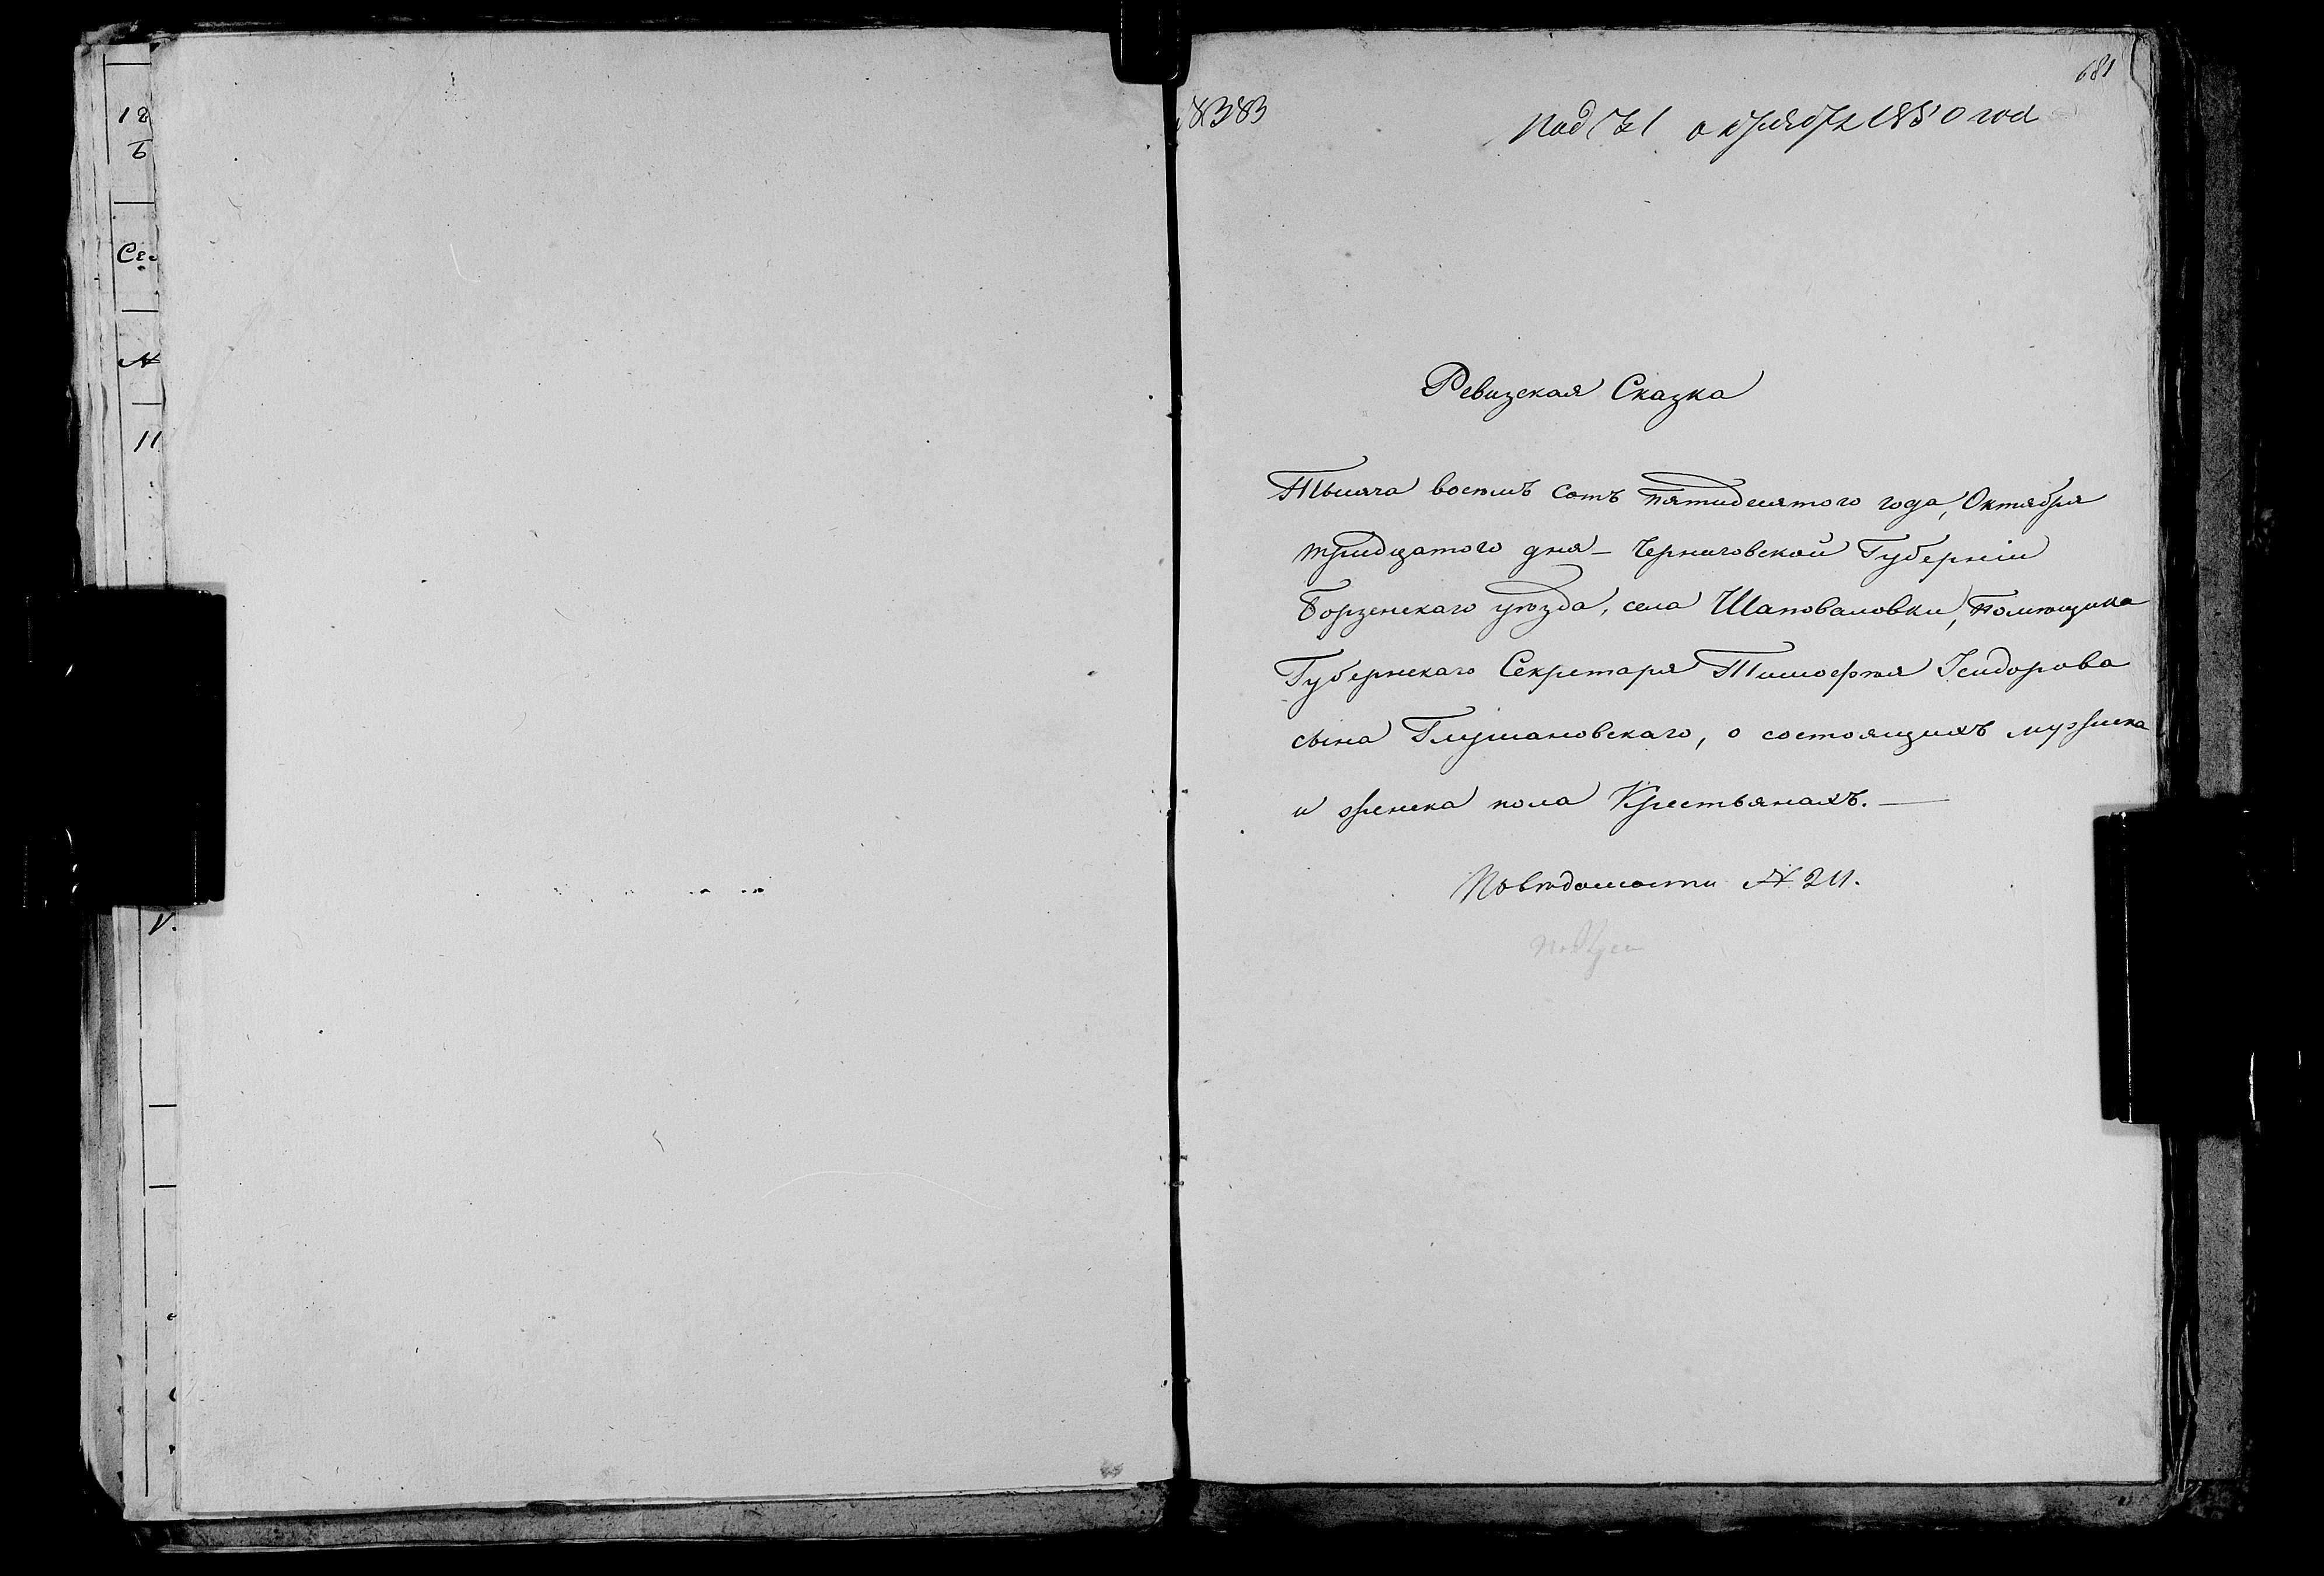 681
8383
Под 31 октября 1850 года
Ревизская Сказка
Тысяча восемь сотъ пятидесятого года, Октября
тридцатого дня – Черниговской Губерніи
Борзенскаго уѣзда, села Шаповаловки, помѣщика
Губернскаго Секретаря Тимофѣя Исидорова
сына Глушановскаго, о состоящихъ мужска
и женска пола Крестьянахъ. —
По вѣдомости № 211.